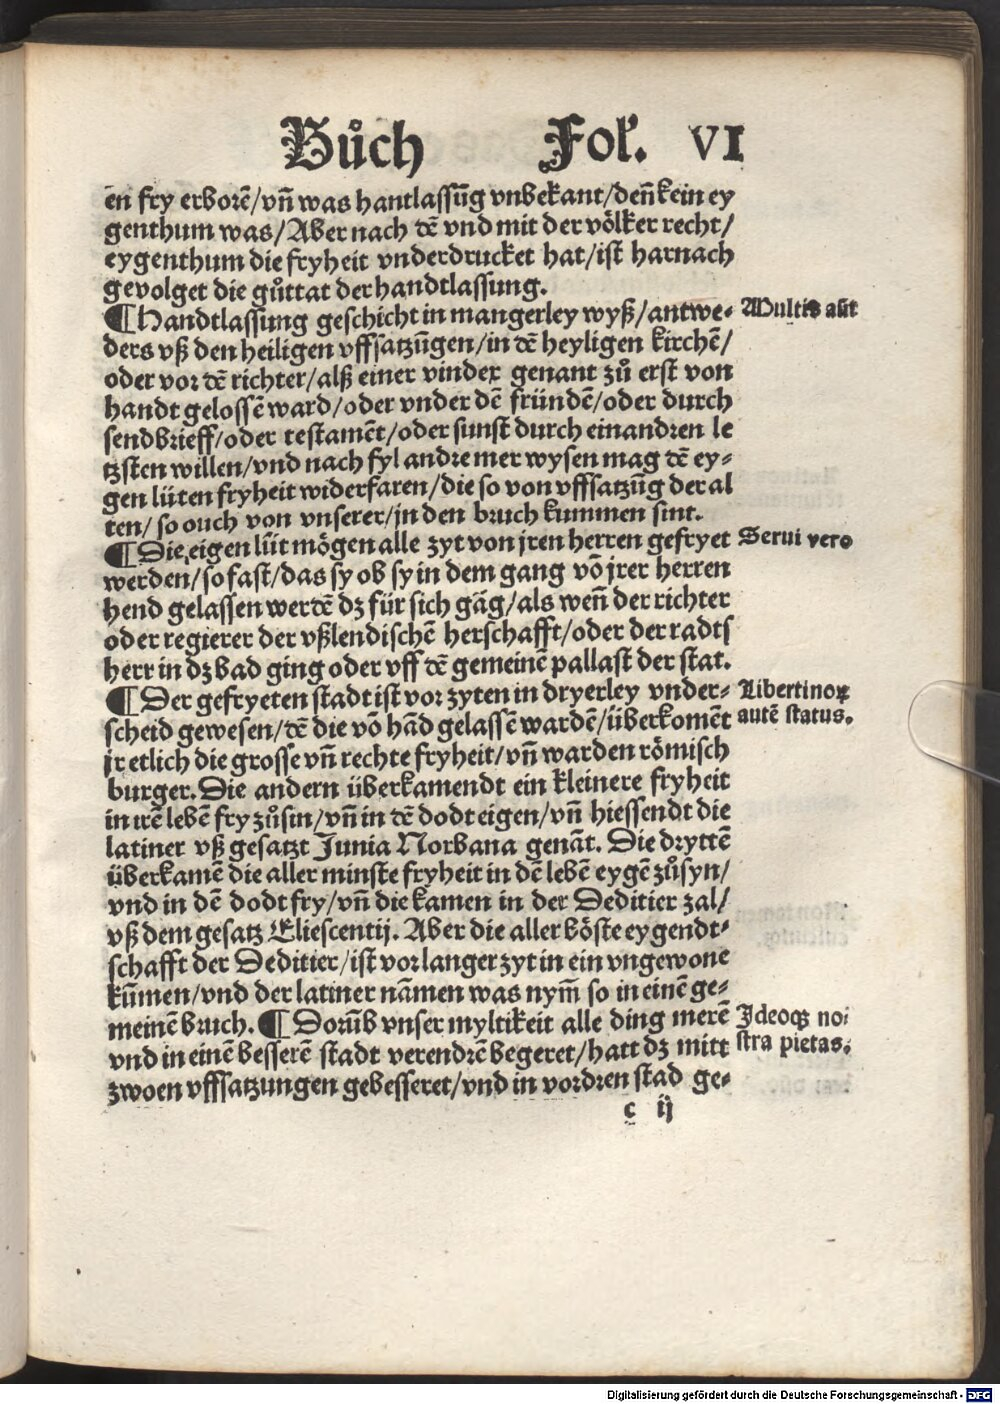 Bůch Fol. VI
en fry erborē/vn̄ was hantlassūg vnbekant/den̄ kein ey
genthum was/Aber nach dē vnd mit der völker recht/
eygenthum die fryheit vnderdrucket hat/ist harnach
gevolget die gůttat der handtlassung.
¶Handtlassung geschicht in mangerley wyß/antwe- Multis aūt
ders vß den heiligen vffsatzūgen/in dē heyligen kirchē/
oder vor dē richter/alß einer vindex genant zů erst von
handt gelossē ward/oder vnder dē fründē/oder durch
sendbrieff/oder testamēt/oder sunst durch einandren le
tzsten willen/vnd nach fyl andre mer wysen mag dē ey-
gen lüten fryheit widerfaren/die so von vffsatzūg der al
ten/so ouch von vnserer/jn den bruch kummen sint.
¶Die eigen lüt mögen alle zyt von jren herren gefryet Serui vero
werden/so fast/das sy ob sy in dem gang vō jrer herren
hend gelassen wertē dz für sich gāg/als wen̄ der richter
oder regierer der vßlendischē herschafft/oder der radts
herr in dz bad ging oder vff dē gemeinē pallast der stat.
¶Der gefryeten stadt ist vor zyten in dryerley vnder- Libertinoꝝ
scheid gewesen/dē die vō hād gelassē wardē/überkomēt autē status.
jr etlich die grosse vn̄ rechte fryheit/vn̄ warden römisch
burger. Die andern überkamendt ein kleinere fryheit
in irē lebē fry zůsin/vn̄ in dē dodt eigen/vn̄ hiessendt die
latiner vß gesatzt Junia Norbana genāt. Die dryttē
überkamē die aller minste fryheit in dē lebē eygē zůsyn/
vnd in dē dodt fry/vn̄ die kamen in der Deditier zal/
vß dem gesatz Eliescentij. Aber die aller böste eygendt-
schafft der Deditier/ist vor langer zyt in ein vngewone
kūmen/vnd der latiner nāmen was nym̄ so in einē ge-
meinē bruch. ¶Dorūb vnser myltikeit alle ding merē Jdeoqȝ no-
vnd in einē besserē stadt verendrē begeret/hatt dz mitt stra pietas.
zwoen vffsatzungen gebesseret/vnd in vordren stad ge-
c ij
Digitalisierung gefördert durch die Deutsche Forschungsgemeinschaft - DFG